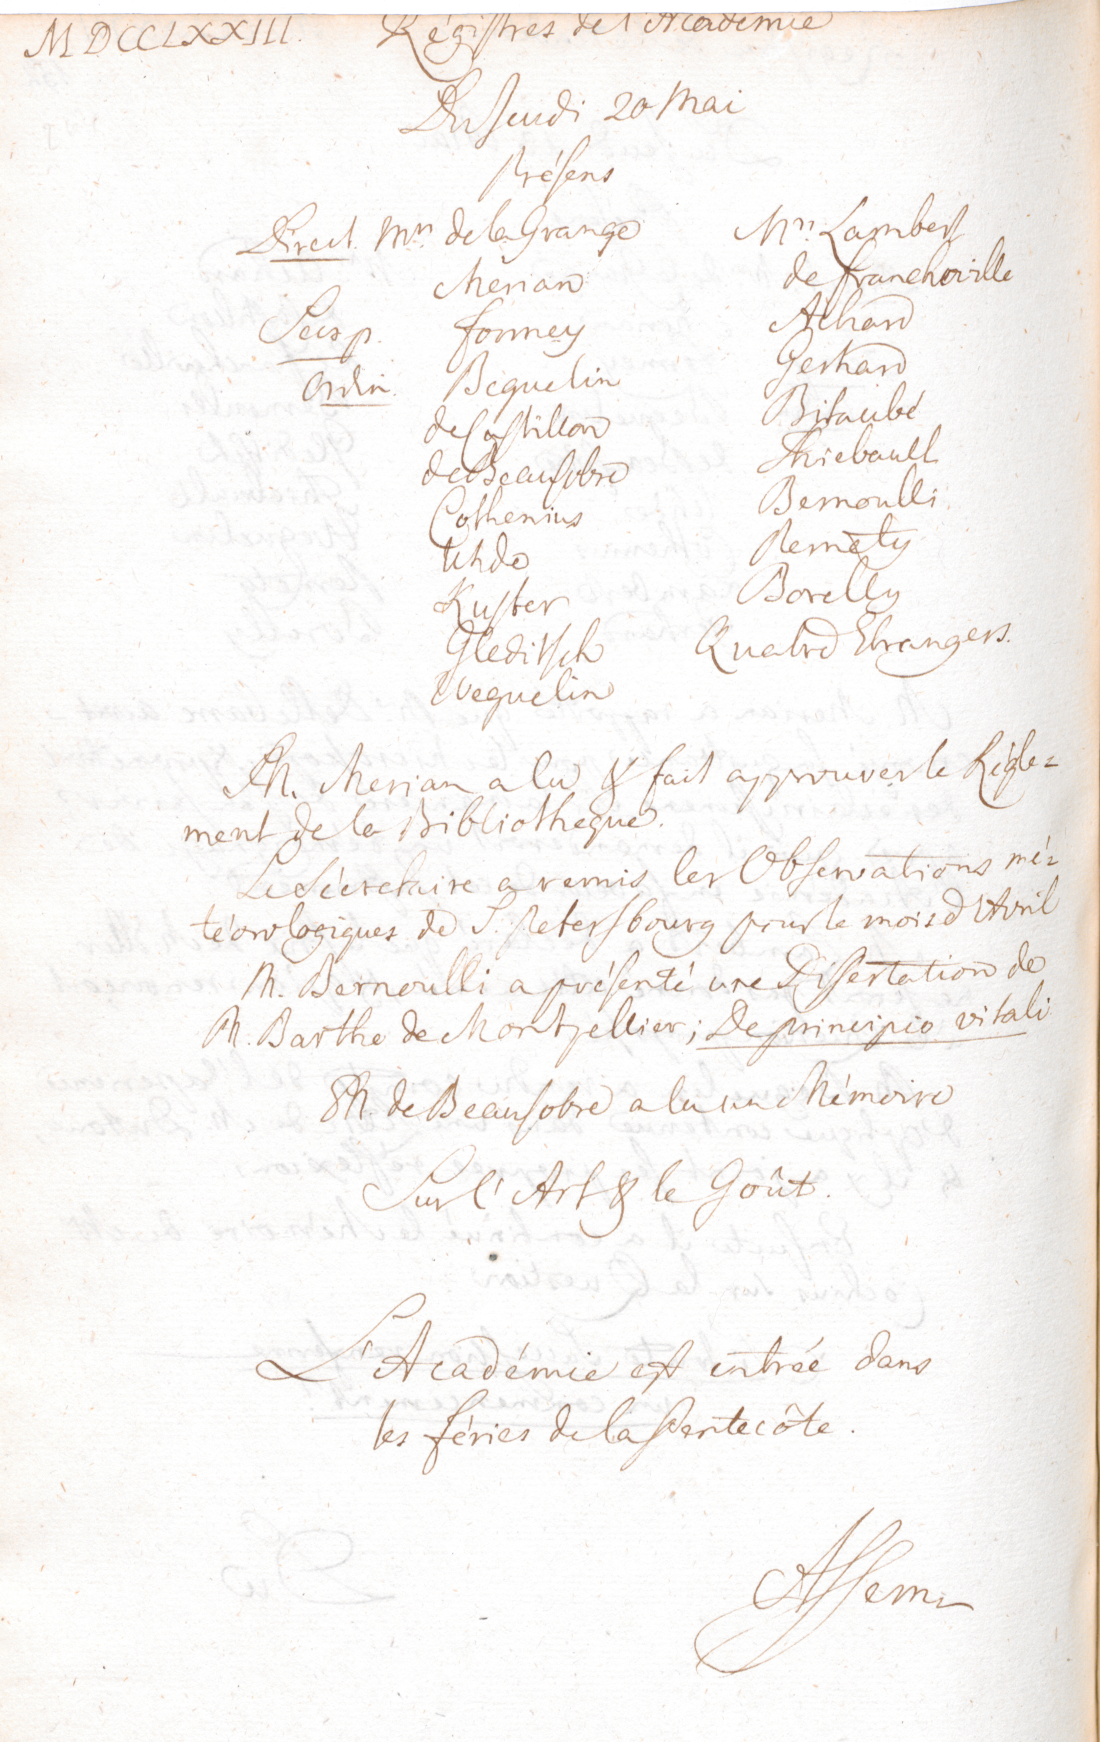 MDCCLXXIII. Régistres de l'Academie
Du Jeudi 20 Mai
Présens
Direct. Mrs. de la Grange
Merian
Secr. p. Formey
Ordin. Beguelin
de Castillon
de Beausobre
Cothenius
Uhde
Kuster
Gleditsch
Weguelin
Mrs. Lambert
de Francheville
Achard
Gerhard
Bitaubé
Thiebault
Bernoulli
Pernety
Borelly
Quatre Etrangers.
M. Merian a lu & fait approuver le Régle=
ment de la Bibliotheque.
Le Sécretaire a remis les Observations mé=
téorologiques de S. Petersbourg pour le mois d'Avril
M. Bernoulli a présenté une Dissertation de
M. Barthe de Montpellier; De principio vitali
M. de Beausobre a lu un Mémoire
Sur l'Art & le Goût.
L'Académie est entrée dans
les féries de la Pentecôte.
Assem